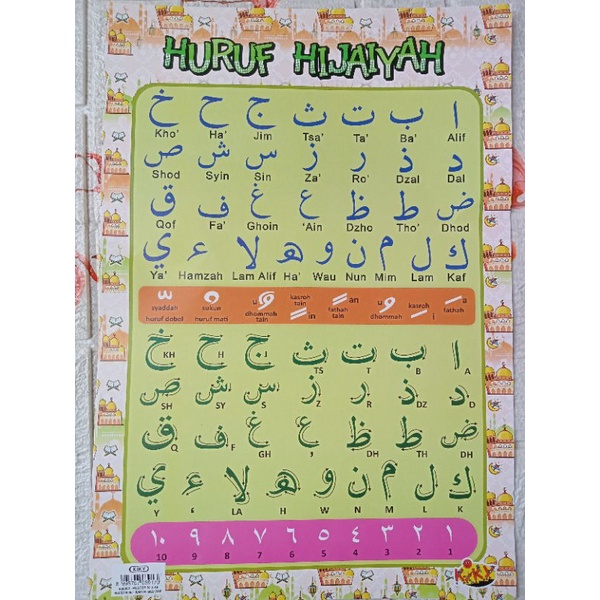 HURUF HIJAIYAH
ا ب ت ث ج ح خ
Alif Ba' Ta' Tsa' Jim Ha' Kho'
د ذ ر ز س ش ص
Dal Dzal Ro' Za' Sin Syin Shod
ض ط ظ ع غ ف ق
Dhod Tho' Dzho 'Ain Ghoin Fa' Qof
ك ل م ن و ه لا ء ي
Kaf Lam Mim Nun Wau Ha' Lam Alif Hamzah Ya'
a fathah
i kasroh
u dhommah
an fathah tain
in kasroh tain
u dhommah tain
sukun huruf mati
syaddah huruf dobel
ا ب ت ث ج ح خ
A B T TS J H KH
د ذ ر ز س ش ص
D DZ R Z S SY SH
ض ط ظ ع غ ف ق
DH TH DH ' GH F Q
ك ل م ن و ه لا ء ي
K L M N W H LA ' Y
١ ٢ ٣ ٤ ٥ ٦ ٧ ٨ ٩ ١٠
1 2 3 4 5 6 7 8 9 10